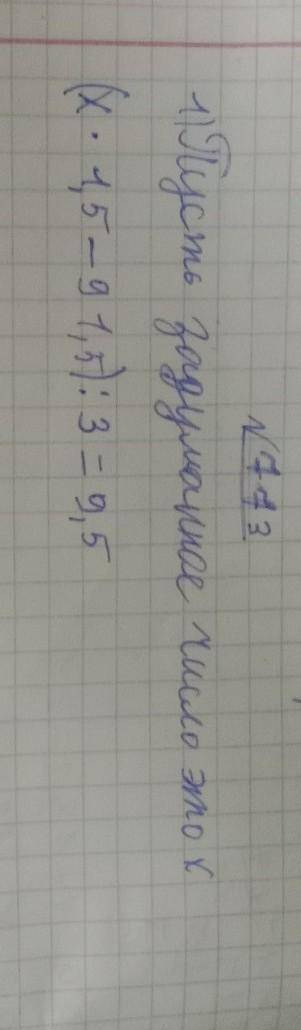 №773
1) Пусть задуманное число это x
(x · 1,5 – 91,5) : 3 = 9,5